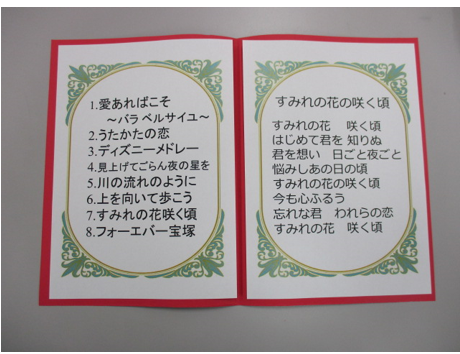 1.愛あればこそ
～バラ ベルサイユ～
2.うたかたの恋
3.ディズニーメドレー
4.見上げてごらん夜の星を
5.川の流れのように
6.上を向いて歩こう
7.すみれの花咲く頃
8.フォーエバー宝塚
すみれの花の咲く頃
すみれの花　咲く頃
はじめて君を 知りぬ
君を想い　日ごと夜ごと
悩みしあの日の頃
すみれの花の咲く頃
今も心ふるう
忘れな君　われらの恋
すみれの花　咲く頃